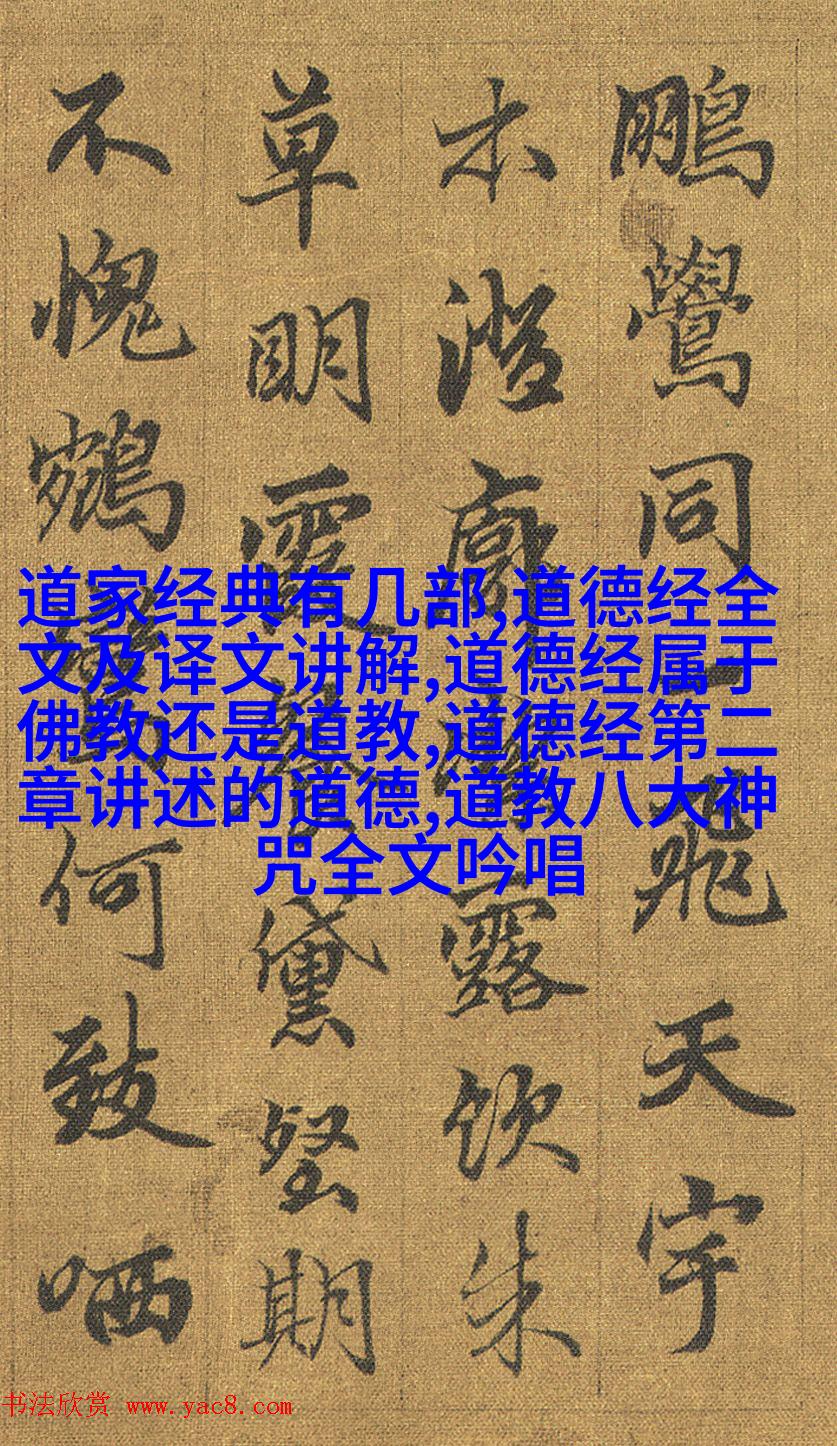 道家经典有几部,道德经全
文及译文讲解,道德经属于
佛教还是道教,道德经第二
章讲述的道德,道教八大神
咒全文吟唱
鵬鷽同一飛天宇
木澄廓露飲朱
草明霞黛壑期
不愧鶴何致哂
书法欣赏 www.yac8.com